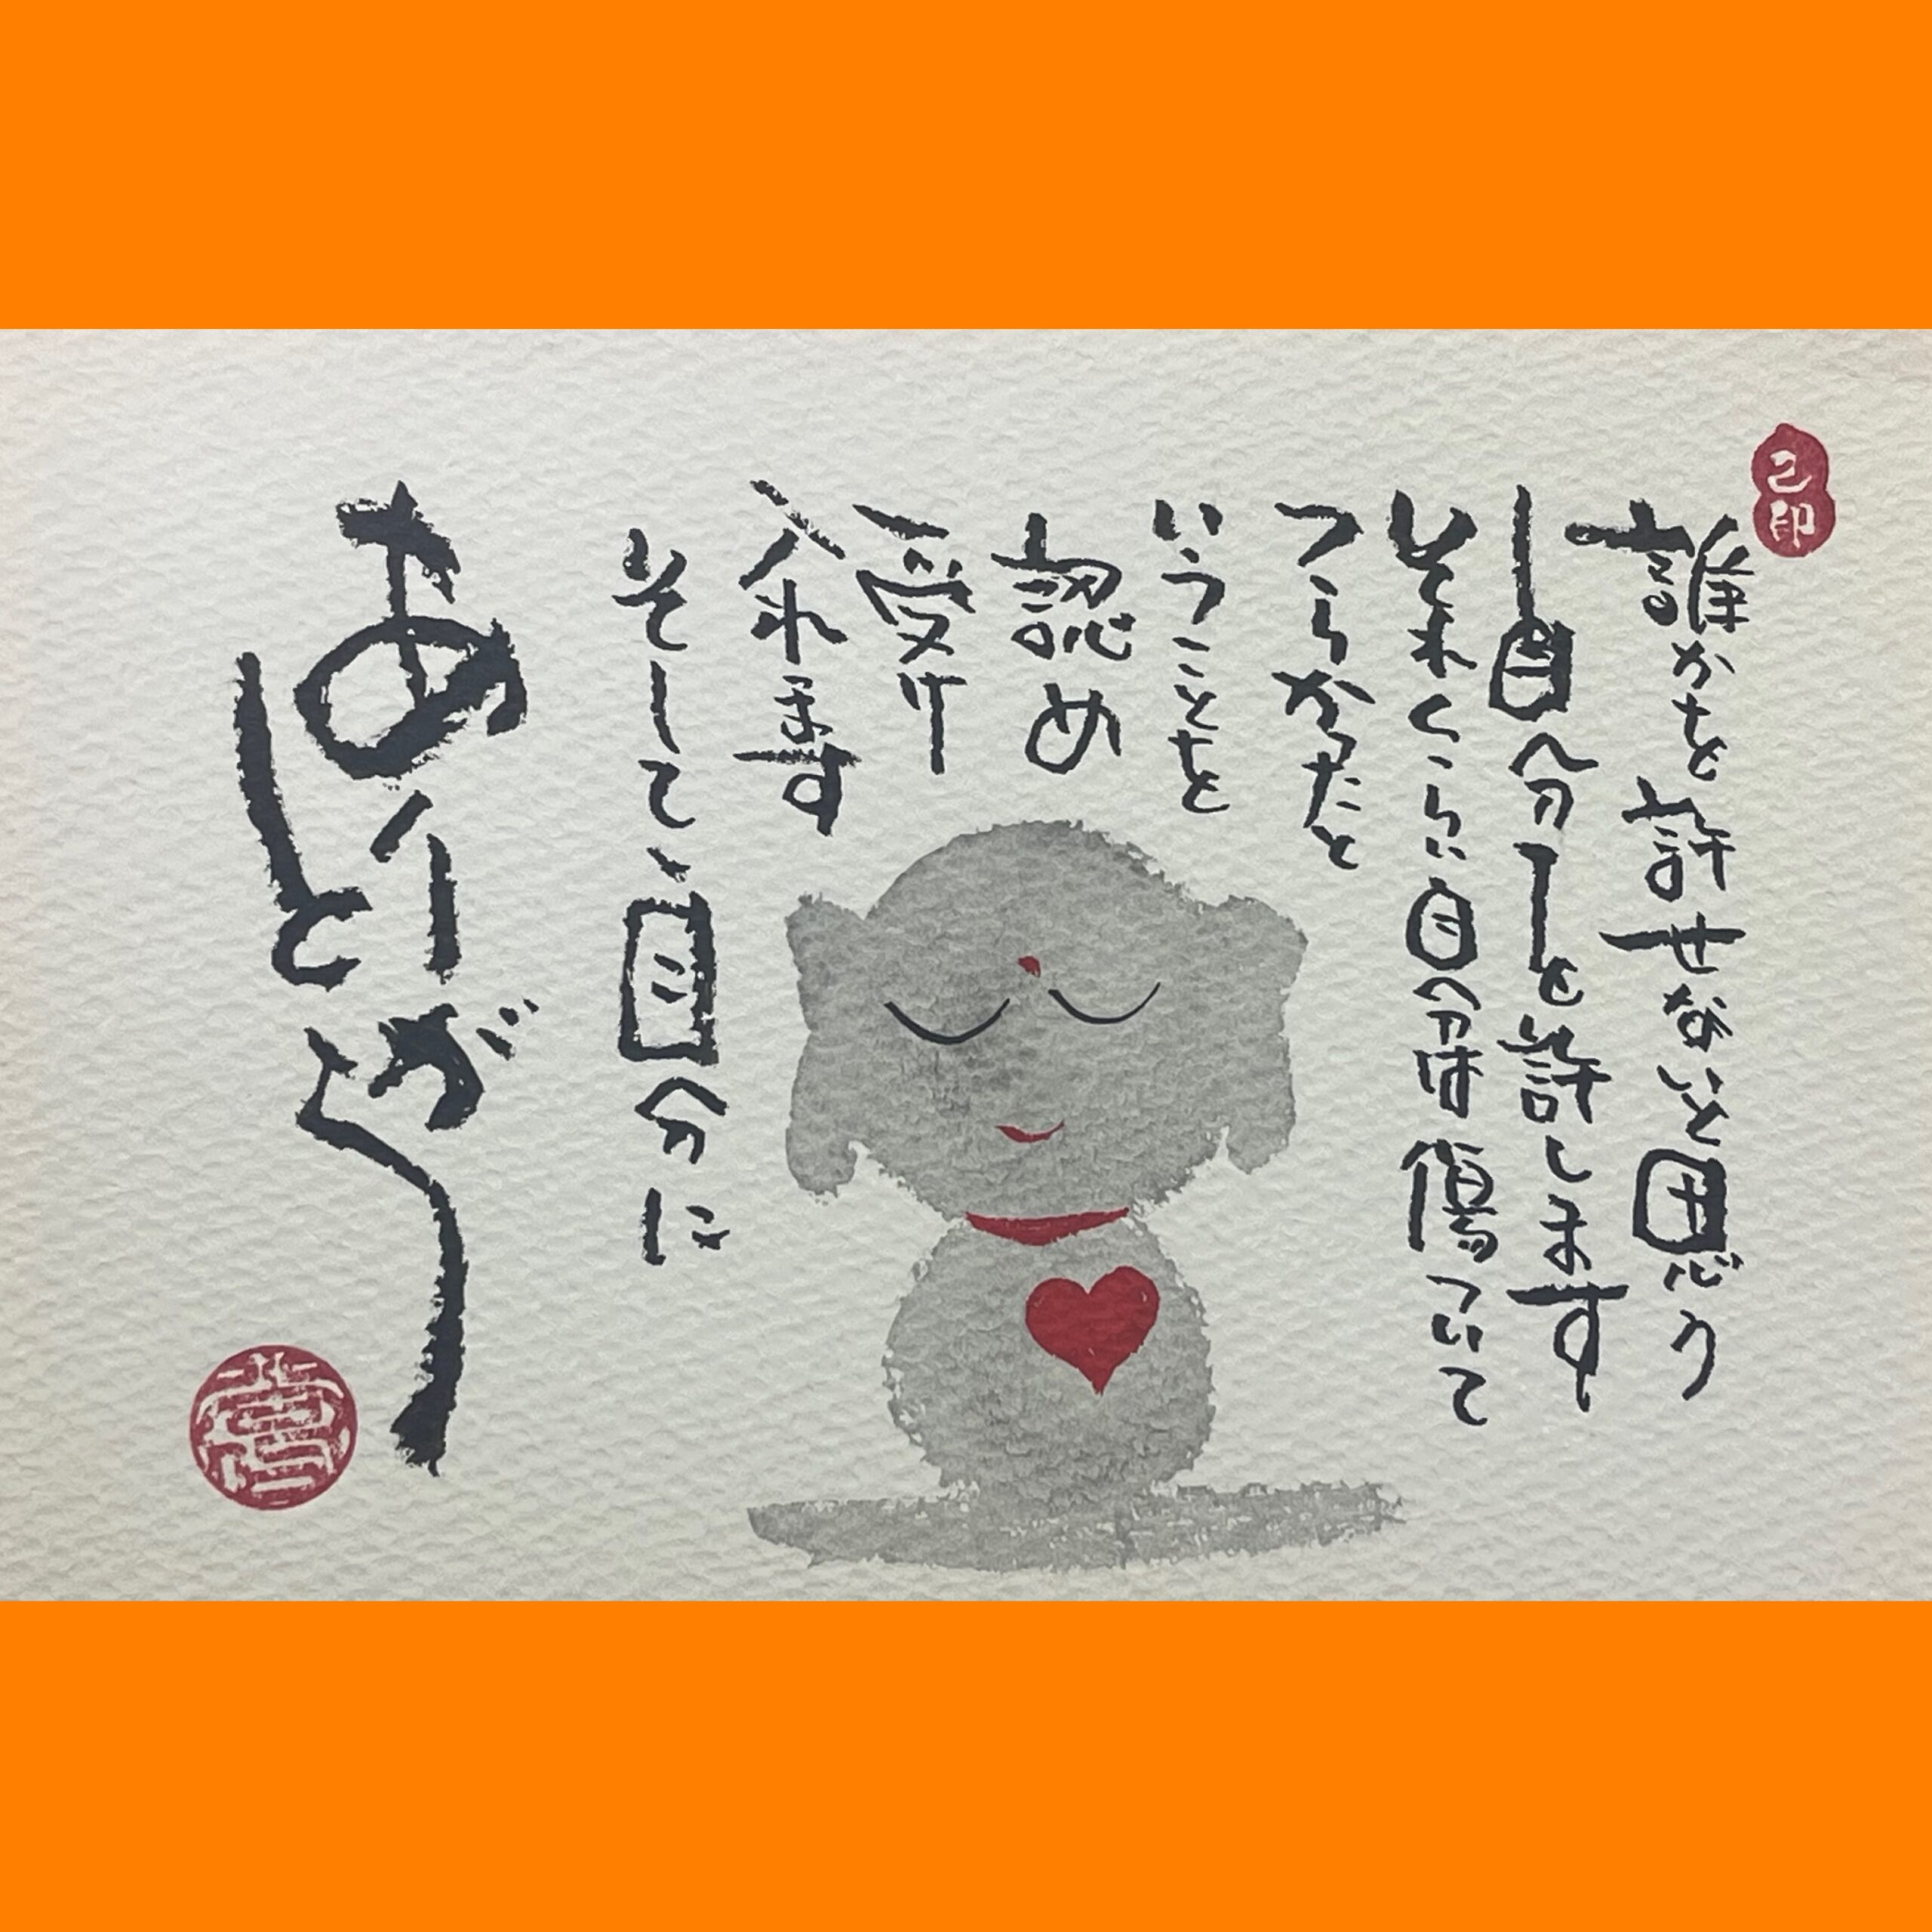 己印
誰かを許せないと思う
自分を許します
それくらい自分は傷ついて
つらかったと
いうことを
認め
受け
入れます
そして、自分に
ありがとう